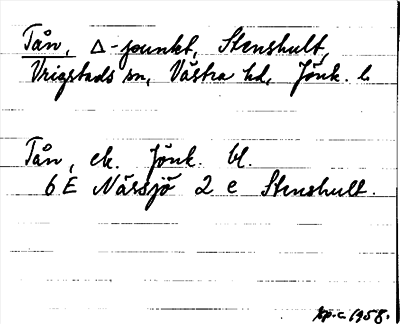 Tån, Δ-punkt, Stenshult,
Vrigstads sn, Västra hd, Jönk. l.
Tån, ek. Jönk. bl.
6 E Nässjö 2 e Stenshult.
kp.c 1958.